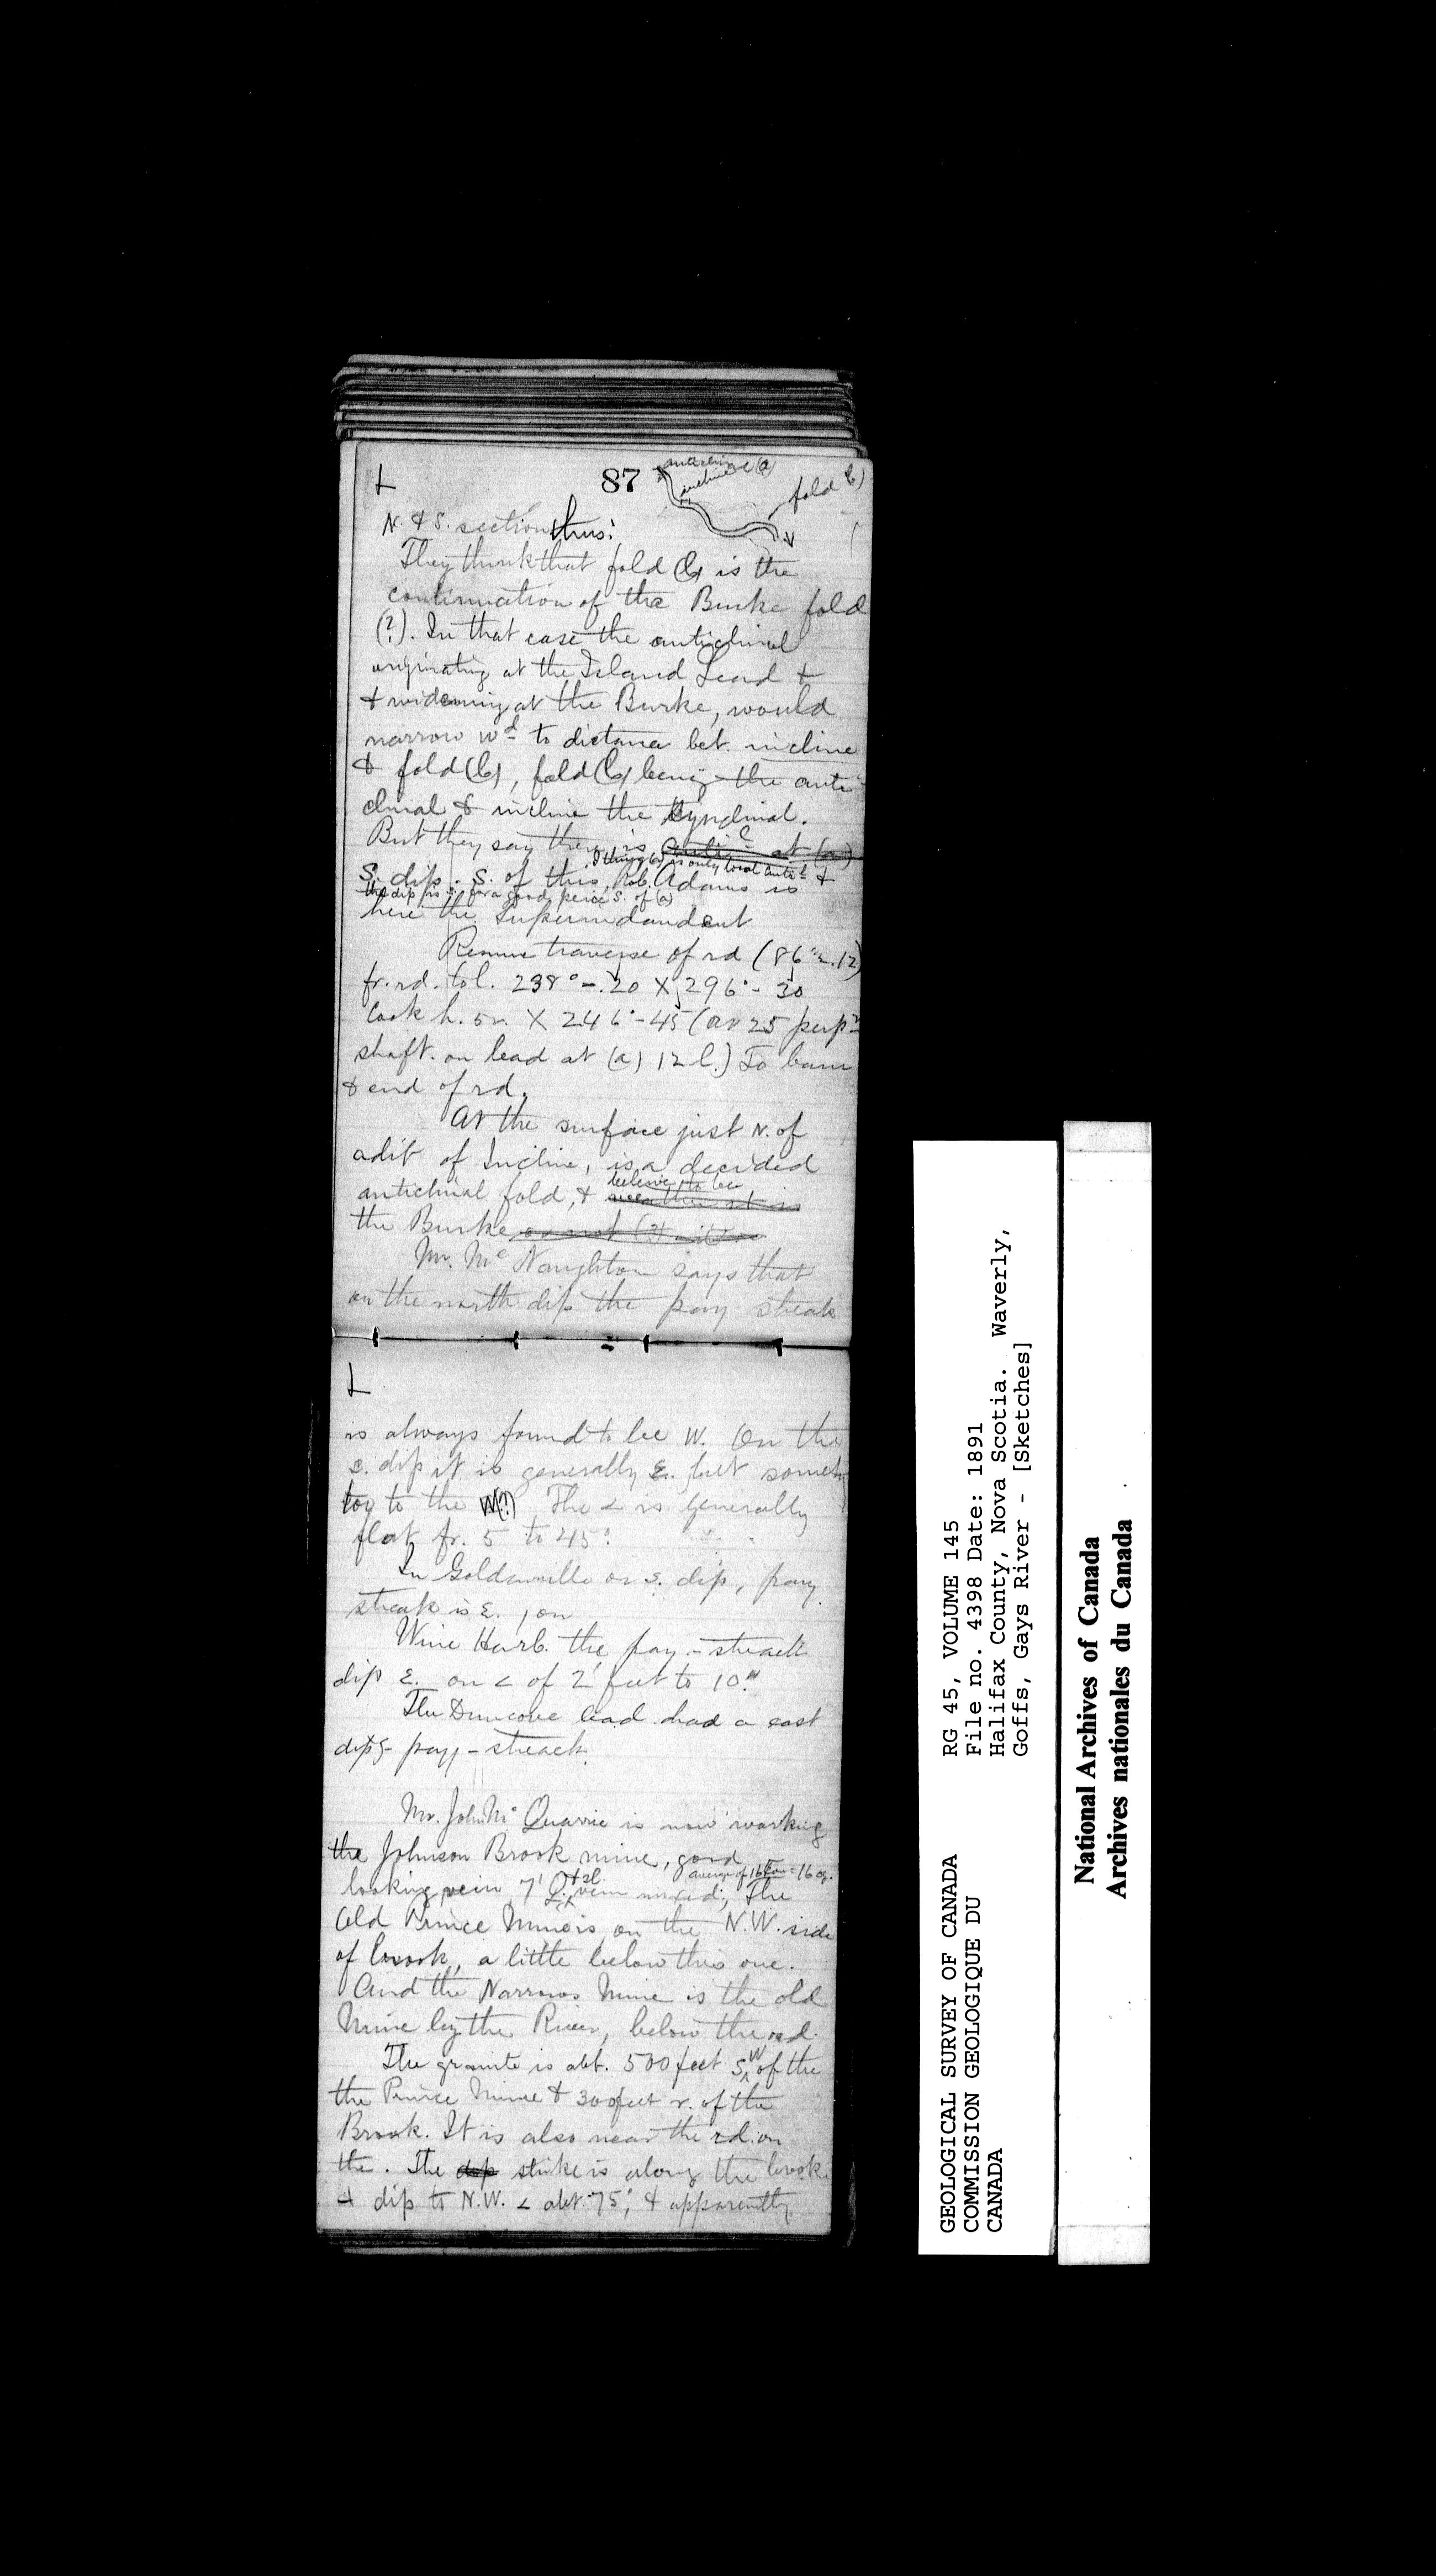 L
87
anticline (a)
incline
fold b)
N. & S. section thus:
They think that fold (b) is the
continuation of the Burke fold
(?). In that case the anticlinal
originating at the Island Lead &
& widening at the Burke, would
narrow wd to distance bet. incline
& fold (b), fold (b) being the anti-
clinal & incline the synclinal.
But they say there is antil at (a)
I think (a) is only local antil &
S. dip. S. of this, Rob. Adams is
the dip is S. for a good peice S. of (a)
here the Superindandent
Resume traverse of rd (86
fr. rd. to l. 238° - .20 X 296° - 30
Cook h. on X 246° - 45 (at 25 perp
shaft on lead at (a) 12 l.) To barn
& end of rd.
At the surface just N. of
adit of Incline, is a decided
believe to be
anticlinal fold, &
the Burke
Mr. Mc Naughton says that
on the north dip the pay streak
L
is always found to be W. On the
S. dip it is generally E. but
to the W(?) The < is generally
flat fr. 5 to 45°.
In Goldenville on S. dip, pay
streak is E., on
Wine Harb. the pay-streack
dip E. on < of 2 feet to 10."
The Duncove lead had a east
dipg pay-streack.
Mr. John Mc Quarrie is now working
the Johnson Brook mine, good
average of 16 Ton = 16 oz.
looking vein, 7' Q. & sl. vein mixed; The
Old Prince Mine is on the N.W. side
of brook, a little below this one.
And the Narrows Mine is the old
Mine by the River, below the rd.
The granite is abt. 500 feet S.W of the
the Prince Mine & 300 feet N. of the
Brook. It is also near the rd. on
the. The dip strike is along the brook
& dip to N.W. < abt. 75°, & apparently
GEOLOGICAL SURVEY OF CANADA
COMMISSION GEOLOGIQUE DU
CANADA
RG 45, VOLUME 145
File no. 4398 Date: 1891
Halifax County, Nova Scotia. Waverly,
Goffs, Gays River - [Sketches]
National Archives of Canada
Archives nationales du Canada